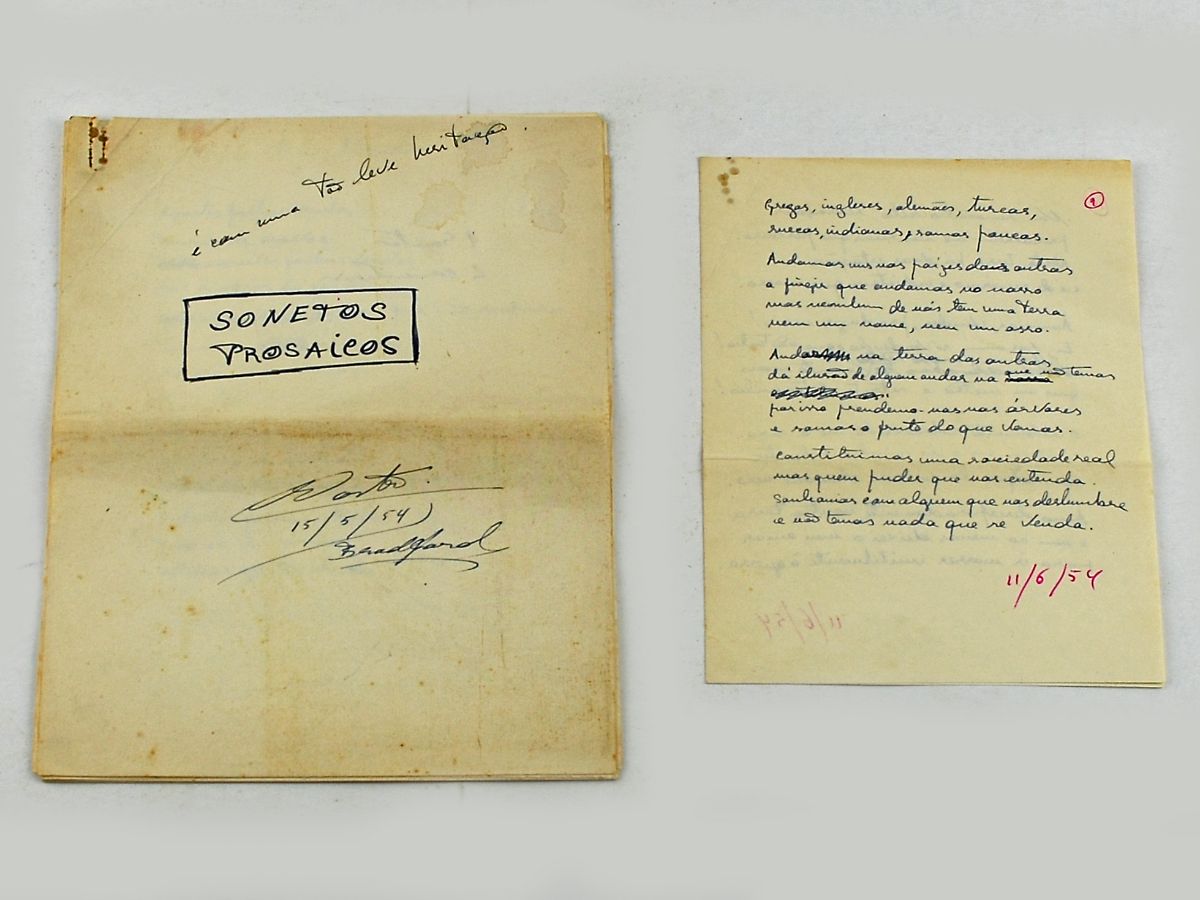 é com uma tão leve hesitação.
SONETOS
PROSAICOS
15/5/54
Bradford
9
Gregos, ingleses, alemães, turcos,
suecos, indianos, somos poucos.
Andamos uns nos paízes dos outros
a fingir que andamos no nosso
mas nenhum de nós tem uma terra
nem um nome, nem um osso.
Andar na terra dos outros
dá ilusão de alguem andar na que não temos
por isso prendemo-nos nas árvores
e somos o fruto do que vemos.
Constituimos uma sociedade real
mas quem puder que nos entenda.
Sonhamos com alguem que nos deslumbre
e não temos nada que se venda.
11/6/54